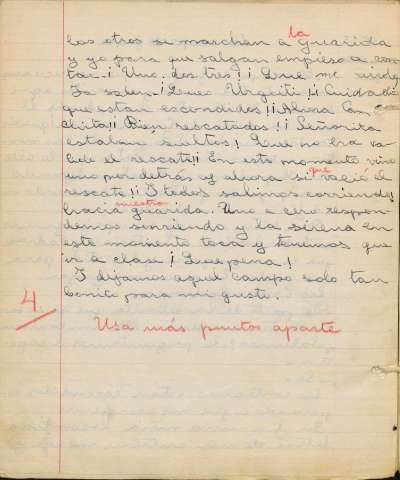 la
los otros se marchan a guarida
y yo para que salgan empiezo a con-
tar. ¡ Uno. dos tres! ¡ Que me
Ya salen. ¡ Lues Urgiti !¡ Cuidado
que estan escondidos! ¡Ahora Con-
chita!¡ Bien rescatados!¡ Señorita
estaban sueltos! Que no ha va-
lido el rescate!¡ En este momento vino
que
uno por detrás y ahora si vació el
rescate!¡ Y todos salimos corriendo
nuestra
hacia guarida. Uno a cero respon-
demos sonriendo y la sirena en
este momento toca y tenemos que
ir a clase ¡ Que pena!
Y dijamos aquel campo solo tan
bonito para mi gusto.
4
Usa más puntos aparte